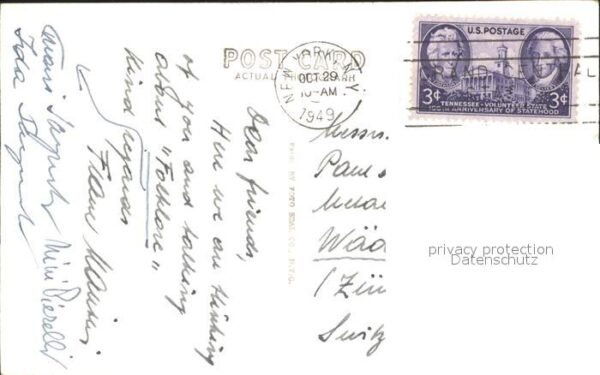 POST CARD
ACTUAL PHOTOGRAPH
NEW YORK, N.Y.
OCT 29
10-AM
1949
U.S. POSTAGE
3¢ 3¢
TENNESSEE-VOLUNTEER STATE
150TH ANNIVERSARY OF STATEHOOD
Dear friends,
Here we are thinking
of you and talking
about "Folklore"
Kind regards
Ida
Mini Pierelli
PUB. BY FOTO SEAL CO., N.Y.C.
Messrs.
Paul
Wäd
(Zür
Switz
privacy protection
Datenschutz